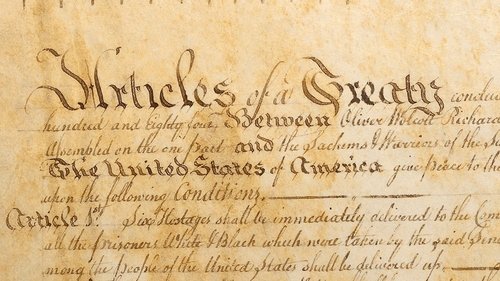 Articles of a Treaty conclu
hundred and Eighty four, Between Oliver Wolcott Richard
Assembled on the one Part and the Sachems & Warriors of the S
The United States of America give peace to the
upon the following Conditions.
Article 1st. Six Hostages shall be immediately delivered to the Com
all the prisoners White & Black which were taken by the said Sen
mong the People of the United States shall be delivered up.